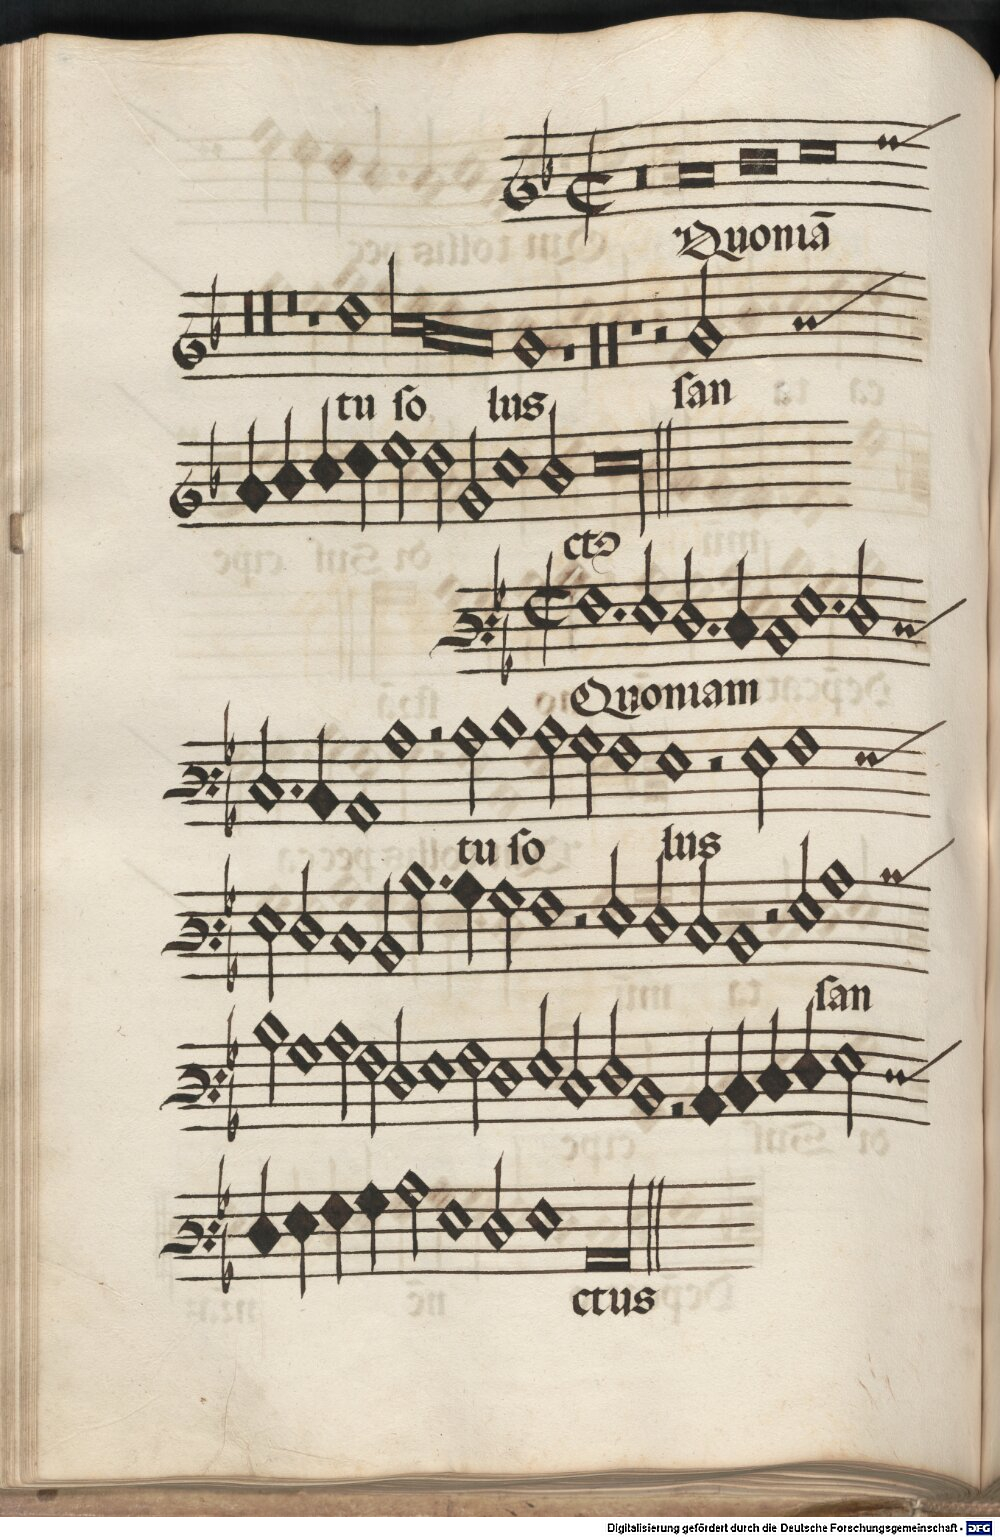 Quoniã
tu so lus san
ctꝰ
Quoniam
tu so lus
san
ctus
Digitalisierung gefördert durch die Deutsche Forschungsgemeinschaft - DFG